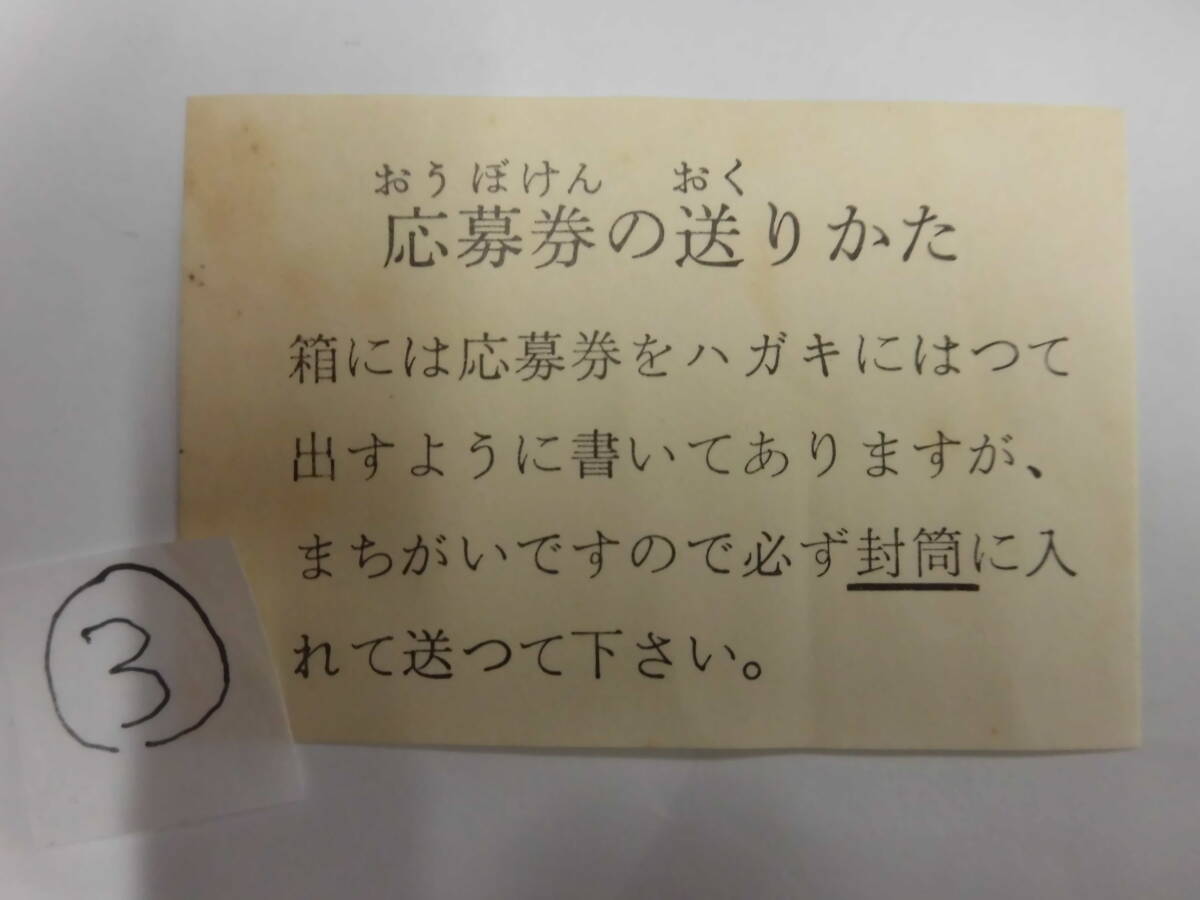 おうぼけん おく
応募券の送りかた
箱には応募券をハガキにはつて
出すように書いてありますが、
まちがいですので必ず封筒に入
れて送つて下さい。
③